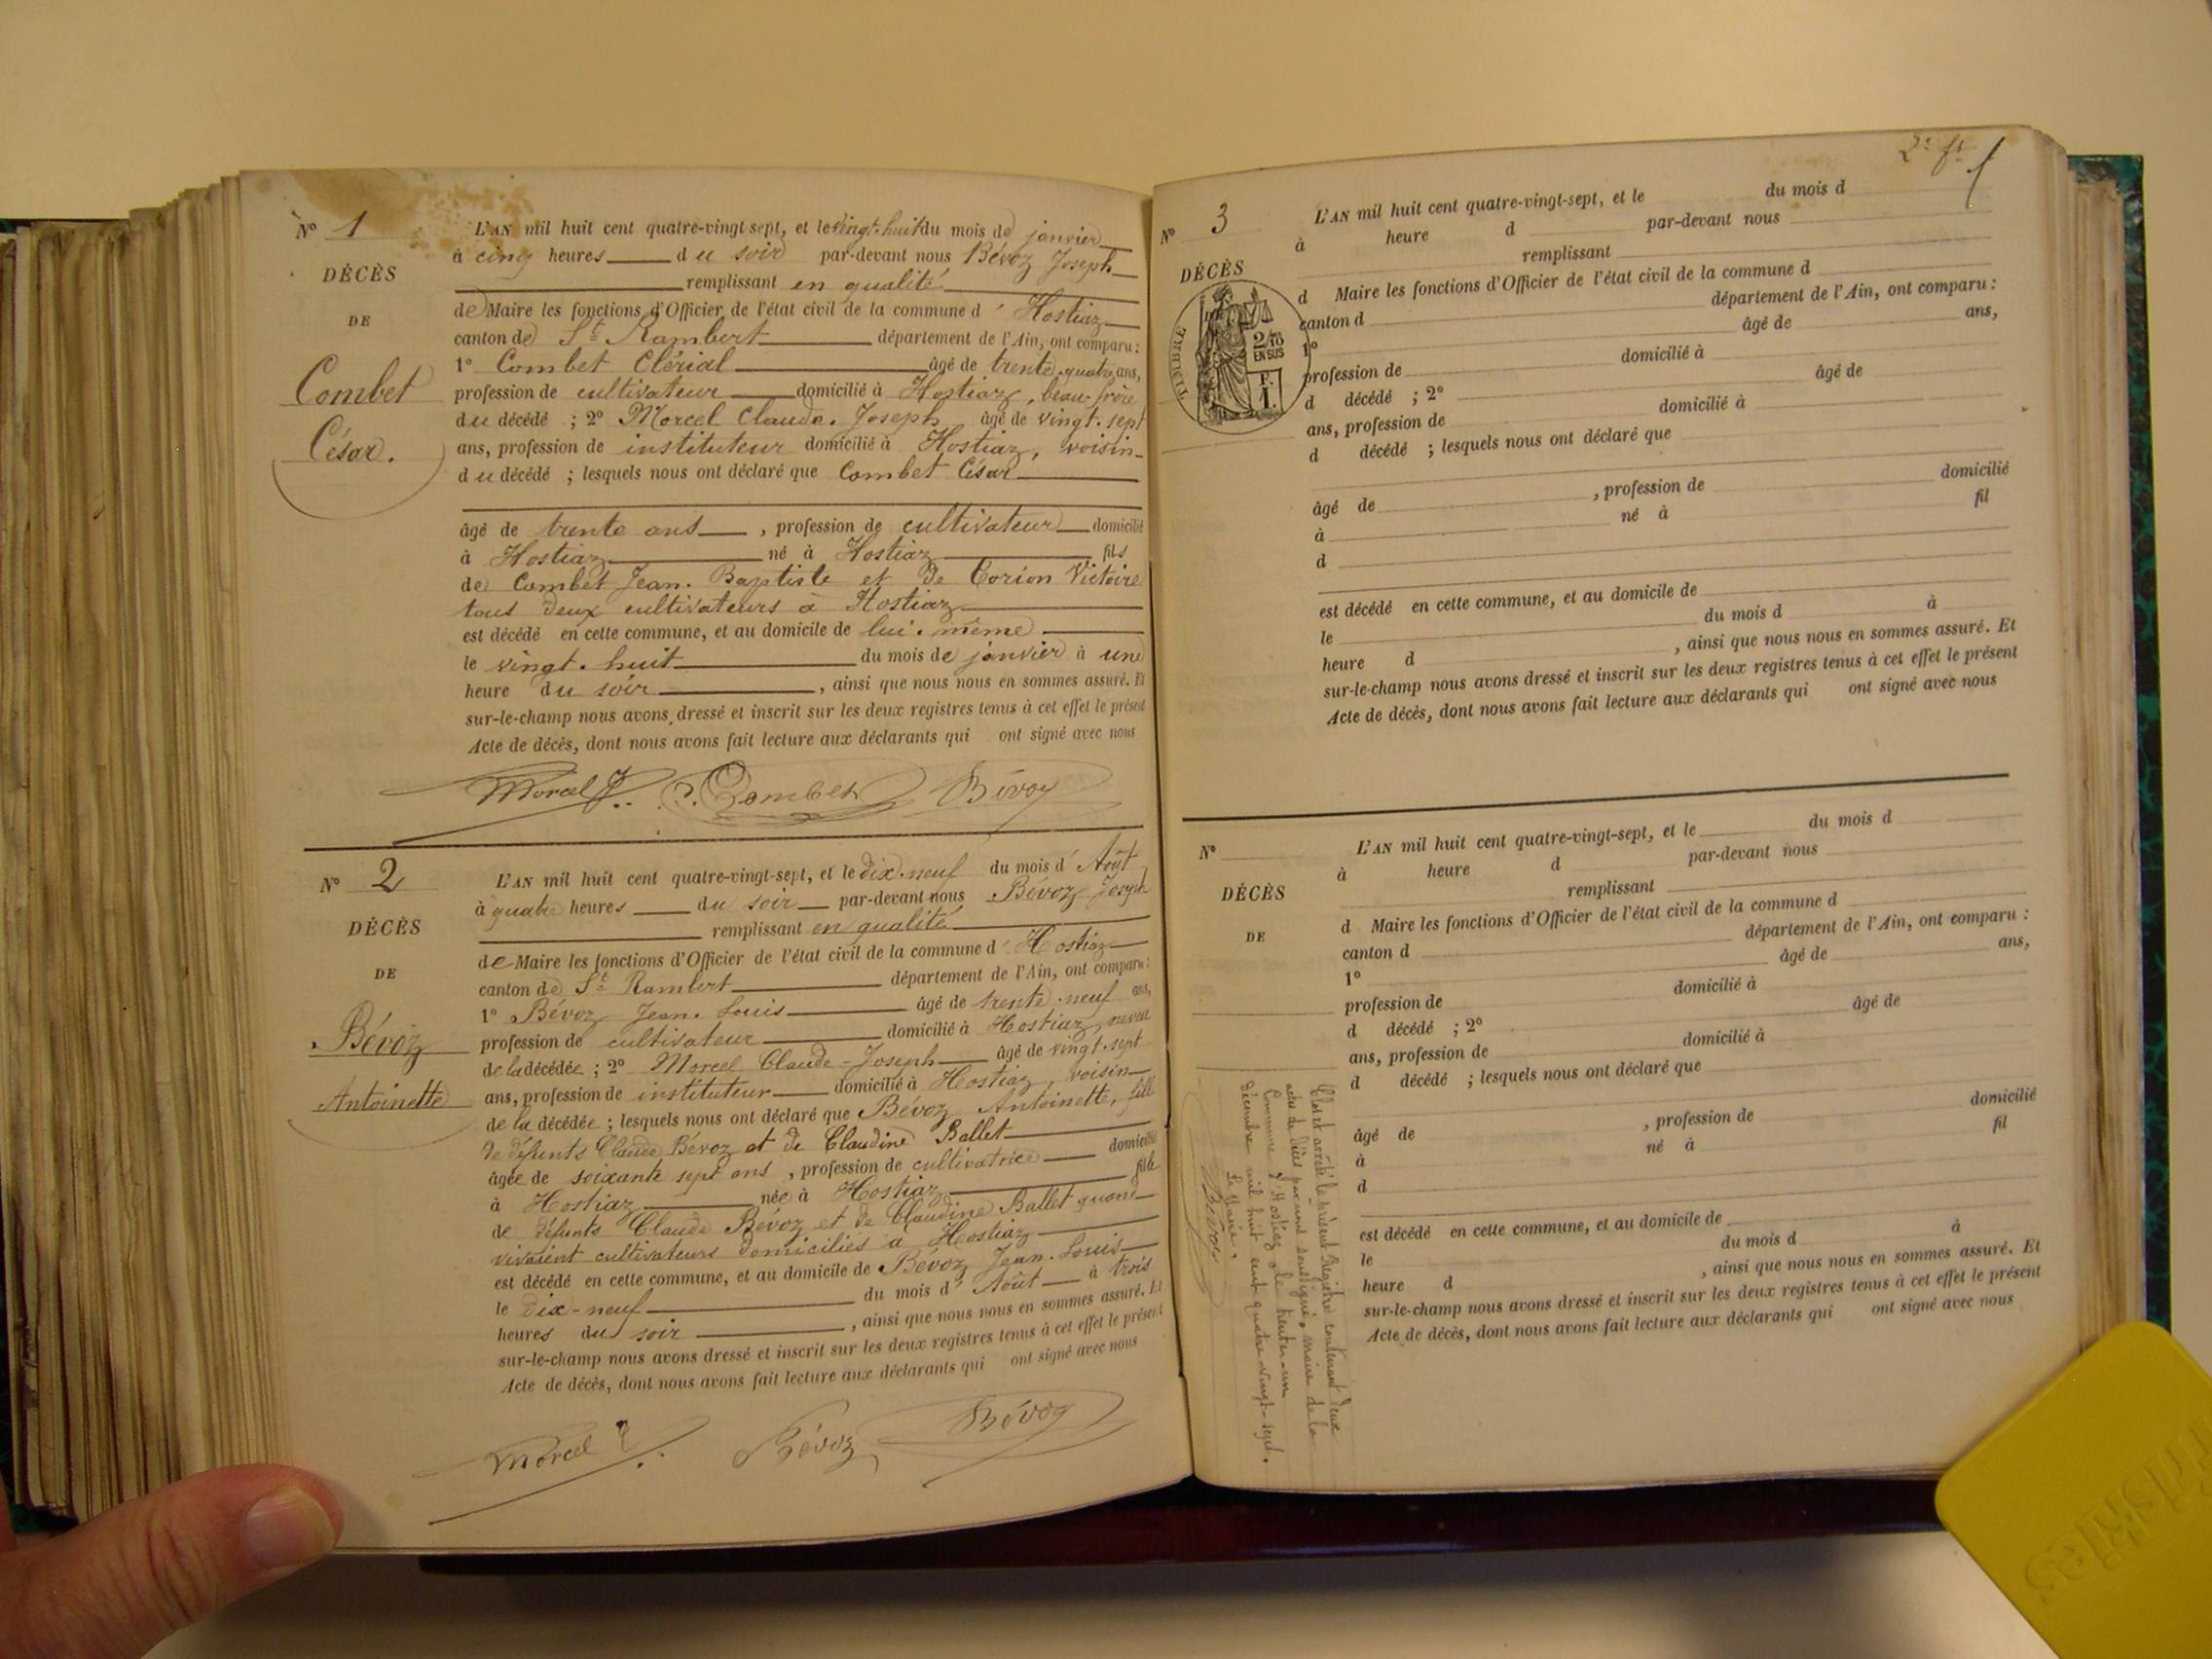 N° 1
DÉCÈS
DE
Combet
César.
L'AN mil huit cent quatre-vingt sept, et le vingt-huit du mois de janvier
à cinq heures du soir par-devant nous Bévoz Joseph
remplissant en qualité
de Maire les fonctions d'Officier de l'état civil de la commune d' Hostiaz
canton de St Rambert département de l'Ain, ont comparu :
1° Combet Clérial âgé de trente-quatre ans,
profession de cultivateur domicilié à Hostiaz, beau-frère
du décédé ; 2° Morcel Claude-Joseph âgé de vingt-sept
ans, profession de instituteur domicilié à Hostiaz, voisin
du décédé ; lesquels nous ont déclaré que Combet César
âgé de trente ans, profession de cultivateur domicilié
à Hostiaz né à Hostiaz fils
de Combet Jean-Baptiste et de Corion Victoire
tous deux cultivateurs à Hostiaz
est décédé en cette commune, et au domicile de lui-même
le vingt-huit du mois de janvier à une
heure du soir, ainsi que nous nous en sommes assuré. Et
sur-le-champ nous avons dressé et inscrit sur les deux registres tenus à cet effet le présent
Acte de décès, dont nous avons fait lecture aux déclarants qui ont signé avec nous
Morcel J. C. Combet Bévoz
N° 2
DÉCÈS
DE
Bévoz
Antoinette
L'AN mil huit cent quatre-vingt-sept, et le dix-neuf du mois d' Août
à quatre heures du soir par-devant nous Bévoz Joseph
remplissant en qualité
de Maire les fonctions d'Officier de l'état civil de la commune d' Hostiaz
canton de St Rambert département de l'Ain, ont comparu :
1° Bévoz Jean-Louis âgé de trente-neuf ans,
profession de cultivateur domicilié à Hostiaz, neveu
de la décédée ; 2° Morcel Claude-Joseph âgé de vingt-sept
ans, profession de instituteur domicilié à Hostiaz, voisin
de la décédée ; lesquels nous ont déclaré que Bévoz Antoinette, fille
de défunts Claude Bévoz et de Claudine Ballet
âgée de soixante sept ans, profession de cultivatrice domicilié
à Hostiaz née à Hostiaz fille
de défunts Claude Bévoz et de Claudine Ballet quand
vivaient cultivateurs domiciliés à Hostiaz
est décédé en cette commune, et au domicile de Bévoz Jean-Louis
le dix-neuf du mois d' Août à trois
heures du soir, ainsi que nous nous en sommes assuré. Et
sur-le-champ nous avons dressé et inscrit sur les deux registres tenus à cet effet le présent
Acte de décès, dont nous avons fait lecture aux déclarants qui ont signé avec nous
Morcel J. Bévoz Bévoz
2e ft
N° 3
DÉCÈS
TIMBRE
2/10
EN SUS
F.
1.
L'AN mil huit cent quatre-vingt-sept, et le du mois d
à heure d par-devant nous
remplissant
d Maire les fonctions d'Officier de l'état civil de la commune d
canton d département de l'Ain, ont comparu :
1° âgé de ans,
profession de domicilié à
d décédé ; 2° âgé de
ans, profession de domicilié à
d décédé ; lesquels nous ont déclaré que
âgé de , profession de domicilié
à né à fil
d
est décédé en cette commune, et au domicile de
le du mois d à
heure d , ainsi que nous nous en sommes assuré. Et
sur-le-champ nous avons dressé et inscrit sur les deux registres tenus à cet effet le présent
Acte de décès, dont nous avons fait lecture aux déclarants qui ont signé avec nous
N°
DÉCÈS
DE
L'AN mil huit cent quatre-vingt-sept, et le du mois d
à heure d par-devant nous
remplissant
d Maire les fonctions d'Officier de l'état civil de la commune d
canton d département de l'Ain, ont comparu :
1° âgé de ans,
profession de domicilié à
d décédé ; 2° âgé de
ans, profession de domicilié à
d décédé ; lesquels nous ont déclaré que
âgé de , profession de domicilié
à né à fil
d
est décédé en cette commune, et au domicile de
le du mois d à
heure d , ainsi que nous nous en sommes assuré. Et
sur-le-champ nous avons dressé et inscrit sur les deux registres tenus à cet effet le présent
Acte de décès, dont nous avons fait lecture aux déclarants qui ont signé avec nous
Clos et arrêté le présent Registre contenant deux
actes de décès par nous soussigné, maire de la
Commune d'Hostiaz, le trente-un
décembre mil huit cent quatre-vingt-sept.
Le Maire,
Bévoz